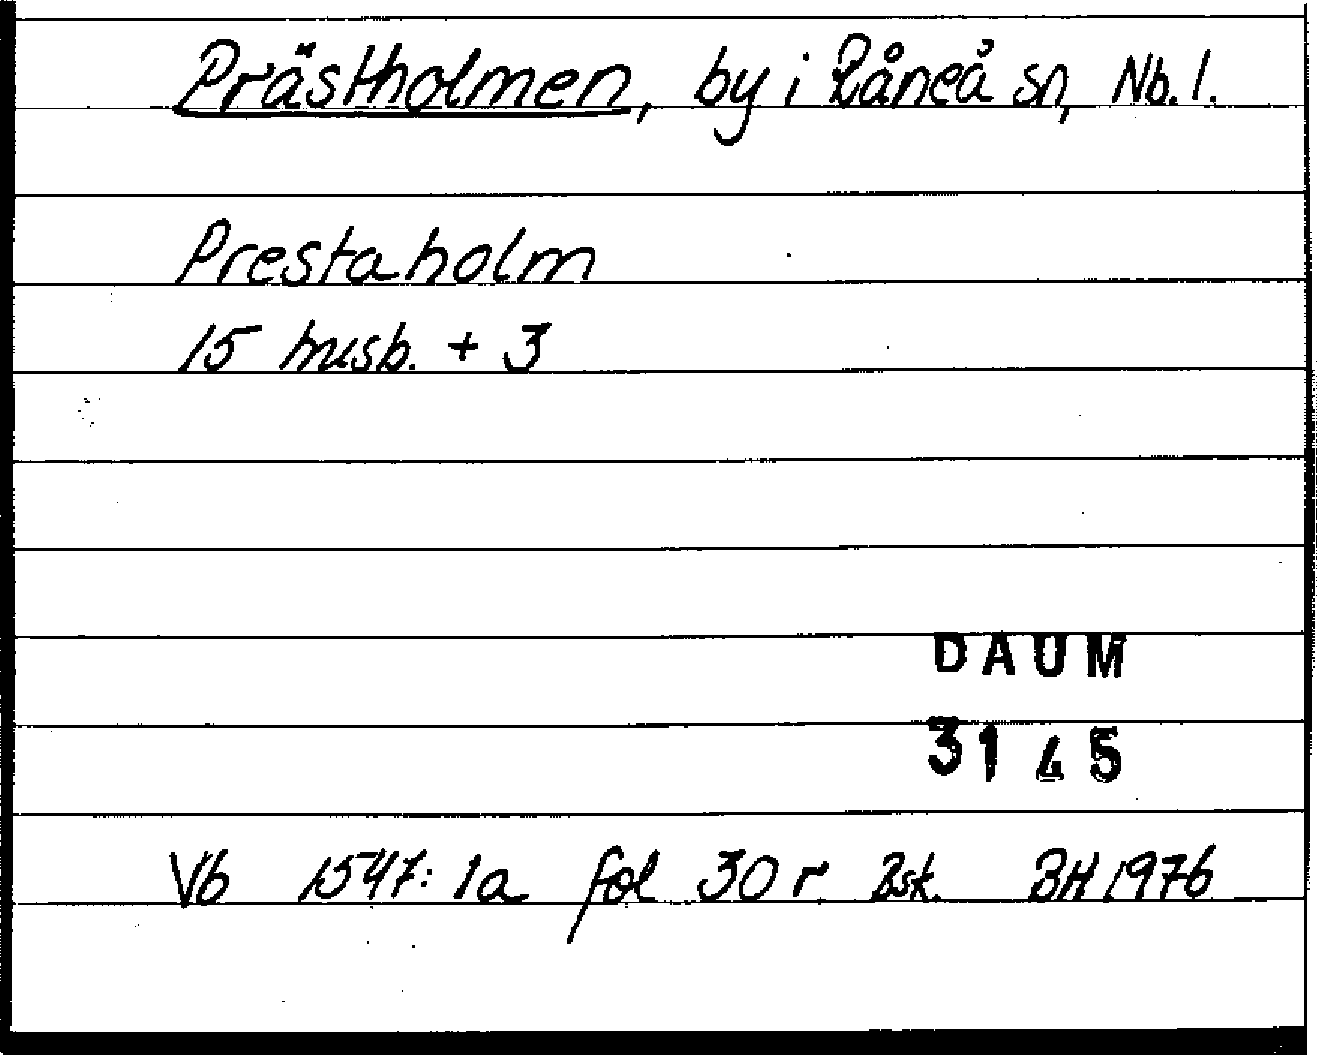 Prästholmen, by i Råneå sn, Nb. l.
Prestaholm
15 husb. + 3
DAUM
3145
Vb 1547: 1a fol 30 r Bsk. BH 1976